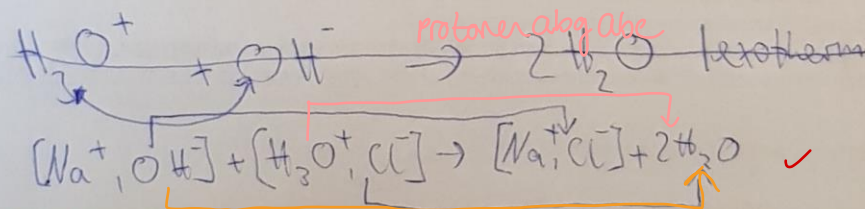 protonenabgabe
H₃O⁺ + OH⁻ → 2H₂O /exotherm
[Na⁺, OH⁻] + [H₃O⁺, Cl⁻] → [Na⁺, Cl⁻] + 2H₂O ✓